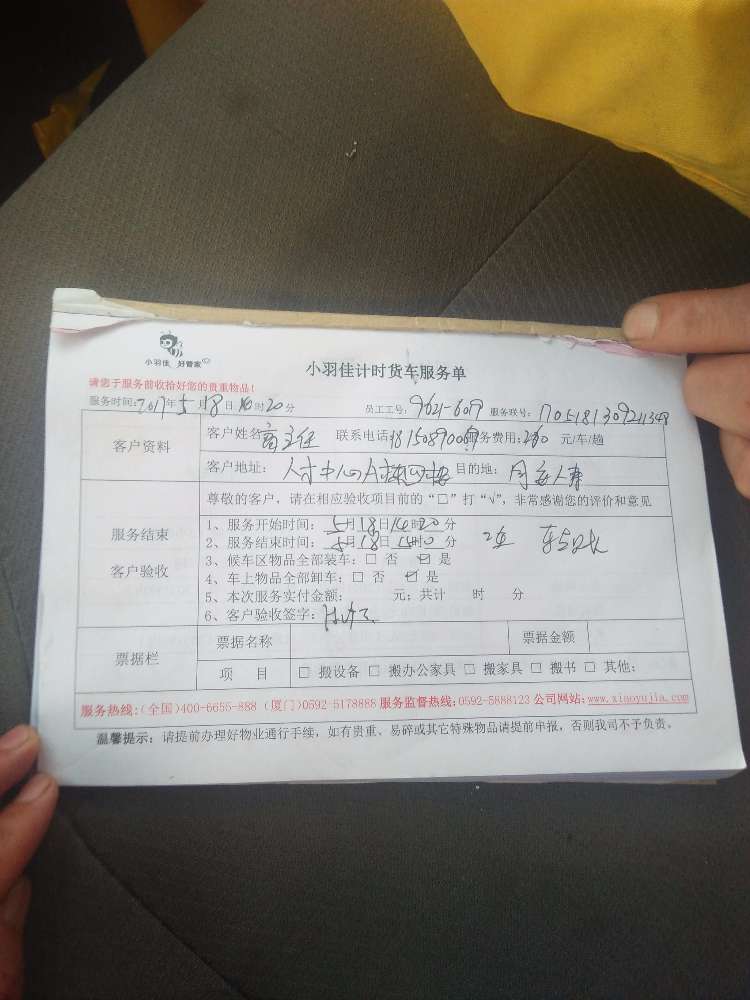 小羽佳 好管家
小羽佳计时货车服务单
请您于服务前收拾好您的贵重物品!
服务时间:2017年5月18日14时20分 员工工号: 9621-6019 服务联号:
客户资料
客户姓名 主任 联系电话 服务费用: 元/车/趟
客户地址: 人才中心A栋 目的地: 同安人寿
尊敬的客户,请在相应验收项目前的“□”打“√”,非常感谢您的评价和意见
服务结束
客户验收
1、服务开始时间: 5月18日14时20分
2、服务结束时间: 5月18日 时 分
3、候车区物品全部装车:□ 否 ☑ 是
4、车上物品全部卸车:□ 否 ☑ 是
5、本次服务实付金额: 元;共计 时 分
6、客户验收签字:
票据栏
票据名称 票据金额
项 目 □ 搬设备 □ 搬办公家具 □ 搬家具 □ 搬书 □ 其他:
服务热线:(全国)400-6655-888 (厦门)0592-5178888 服务监督热线:0592-5888123 公司网站:www.xiaoyujia.com
温馨提示: 请提前办理好物业通行手续,如有贵重、易碎或其它特殊物品请提前申报,否则我司不予负责。